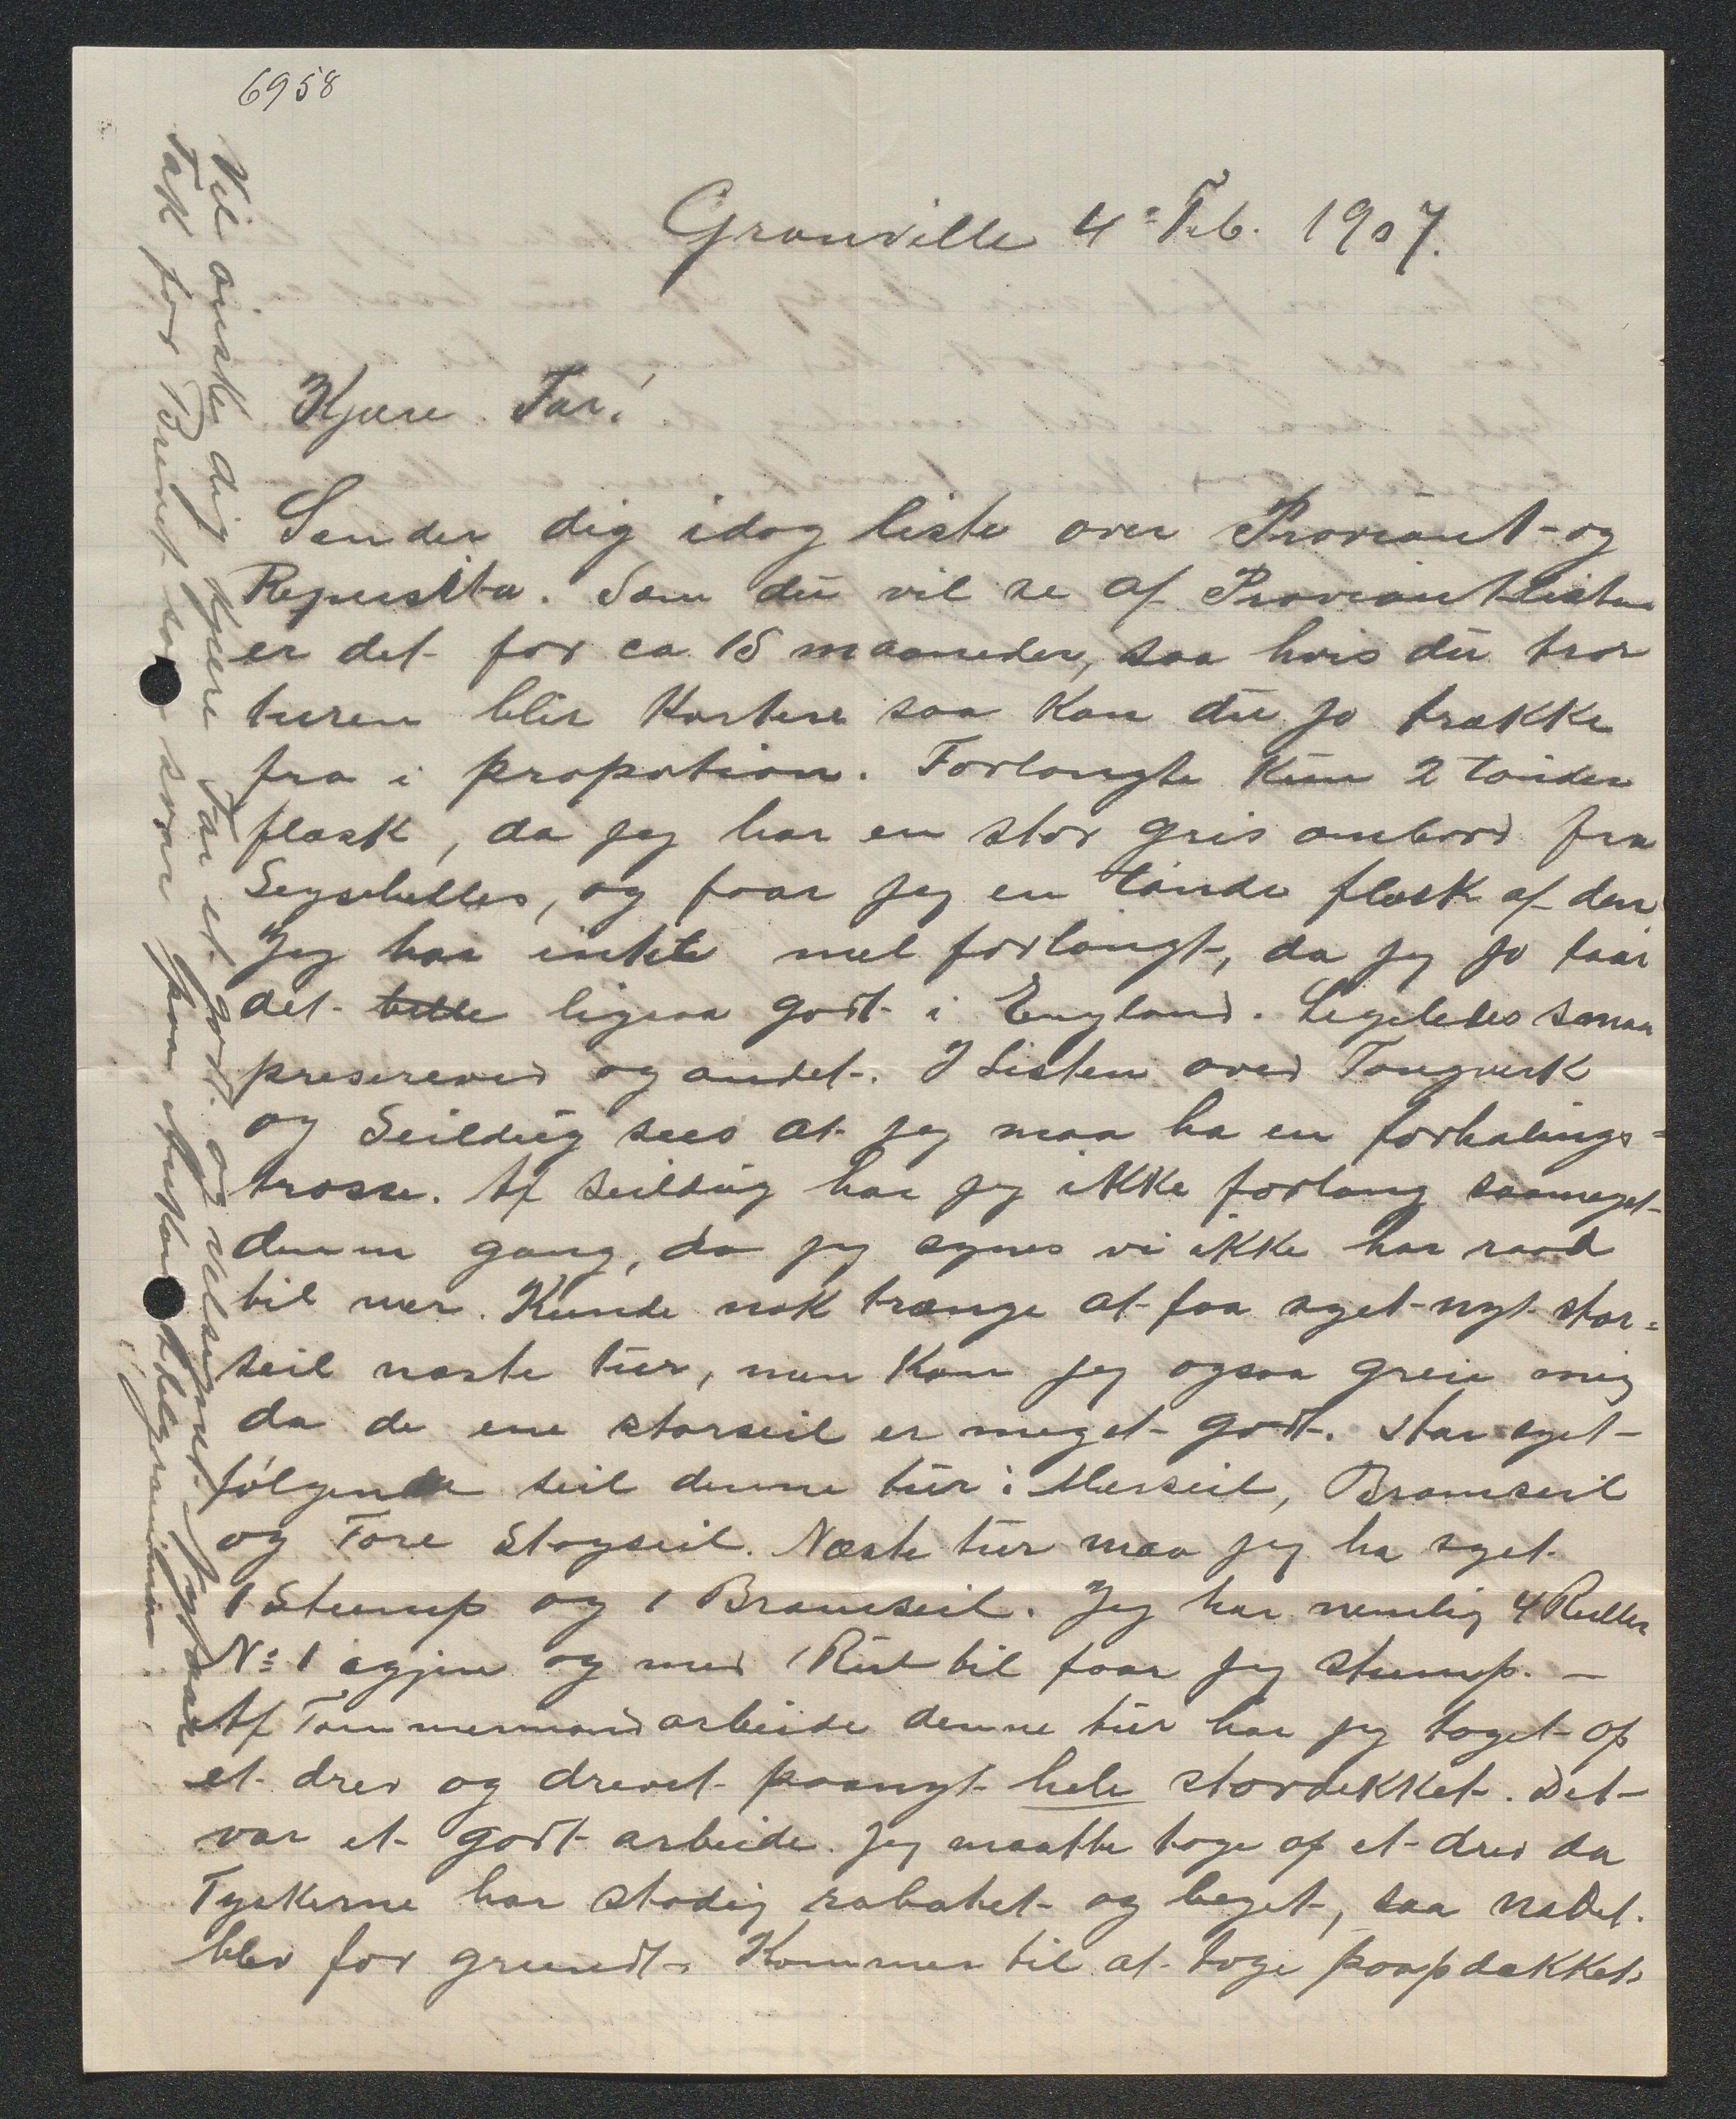 6958
Granville 4= Feb. 1907.
Kjære Far!
Sender dig idag liste over Proviant- og
Requisita. Som du vil se af Proviantlisten
er det for ca 15 maaneder, saa hvis du tror
turen blir kortere saa kan du jo trække
fra i propotion. Forlangte kun 2 tønder
flæsk, da jeg har en stor gris ombord fra
Seyschelles, og faar jeg en tønde flæsk af den
Jeg har inkte mel forlangt, da jeg jo faar
det ligesaa godt i England. Ligeledes smaa
preserved og andet. I Listen over Tougverk
og Seildug sees at jeg maa ha en forhalings=
trosse. Af seildug har jeg ikke forlang saameget
denne gang, da jeg synes vi ikke har raad
til mer. Kunde nok trænge at faa syet nyt stor=
seil næste tur, men kan jeg ogsaa greie mig
da de ene storseil er meget godt. Har syet
følgende seil denne tur: Merseil, Bramseil
og Fore Stagseil. Næste tur maa jeg ha syet
1 Stump og 1 Bramseil. Jeg har nemlig 4 Ruller
No 1 igjen og med 1 Rul til faar jeg stump. —
Af Tømmermandarbeide denne tur har jeg taget op
et drev og drevet paanyt hele stordekket. Det
var et godt arbeide. Jeg maatte tage op et drev da
Tyskerne har stadig rabatet og beget, saa nadet
blev for grundt. Kommer til at tage poopdækket
Vil ønske dig kjære Far et godt og velsignet Nytaar
Tak for Brevet som svar paa telegrammer.